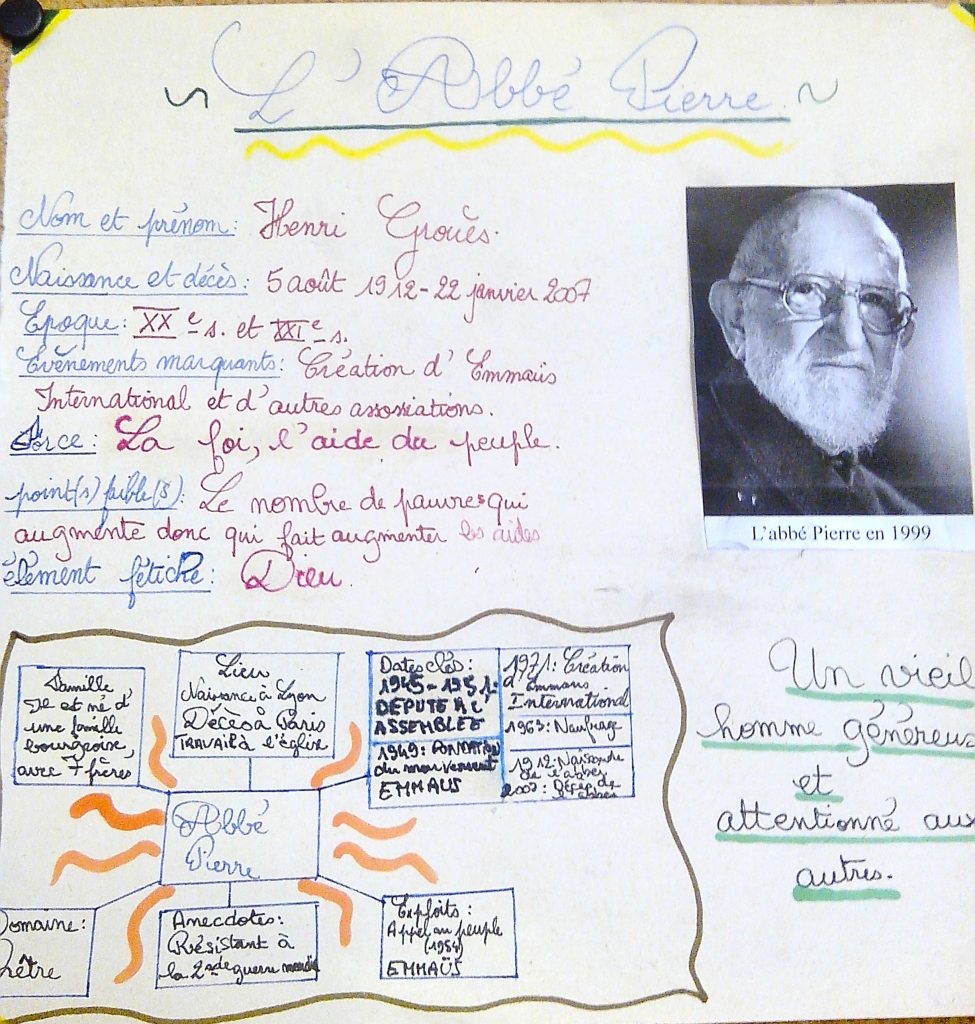 ~ L'Abbé Pierre ~
Nom et prénom: Henri Grouès.
Naissance et décès: 5 août 1912-22 janvier 2007
Epoque: XXe s. et XXIe s.
Evènements marquants: Création d'Emmaüs
International et d'autres assossiations.
Force: La foi, l'aide du peuple.
point(s) faible(s): Le nombre de pauvres qui
augmente donc qui fait augmenter les aides
élèment fétiche: Dieu.
L'abbé Pierre en 1999
Un vieil
homme généreux
et
attentionné aux
autres.
Famille
Il et né d'
une famille
bourgeoise,
avec 7 frères
Lieu
Naissance à Lyon
Décès à Paris
TRAVAIL à l'église
Dates clés:
1945-1951:
DÉPUTÉ A L'
ASSEMBLÉE
1949: FONDATION
du mouvement
EMMAUS
1971: Création
d'Emmaus
International
1963: Naufrage
1912: Naissance
de l'abbé
2007: Décès de
l'abbé
Abbé
Pierre
Domaine:
Prêtre
Anecdotes:
Résistant à
la 2nde guerre mondiale
Exploits:
Appel au peuple
(1954)
EMMAÜS